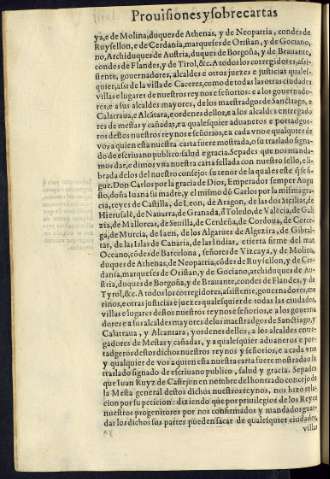 Prouisiones y sobrecartas
ya, e de Molina, duques de Athenas, y de Neopatria, condes de
Ruysellon, e de Cerdania, marqueses de Oristan, y de Gociano,
Archiduques de Austria, duques de Borgoña, y de Brauante,
condes de Flandes, y de Tirol, &c. A todos los corregidores, assistente,
gouernadores, alcaldes e otros juezes e justicias quales
quier, assi de la villa de Caceres, como de todas las otras ciudades
villas e lugares de nuestros reynos e señorios: e a los gouernadores,
e a sus alcaldes mayores, de los maestradgos de Sanctiago, e
Calatraua, e Alcātara, e ordenes dellos, e a los alcaldes entregadores
de mestas y cañadas, e a qualesquier aduaneros e portadgueros
destos nuestros reynos e señorios, e a cada vno e qualquier de
vos a quien esta nuestra carta fuere mostrada, o su traslado signado
de escriuano publico: salud e gracia. Sepades que nos mandamos
dar, e dimos vna nuestra carta sellada con nuestro sello, e librada
delos del nuestro consejo: su tenor de la qual es este q̄ se sigue.
Don Carlos por la gracia de Dios, Emperador semper Augusto,
doña Ioana su madre, y el mismo dō Carlos por la misma gracia,
reyes de Castilla, de Leon, de Aragon, de las dos Sicilias, de
Hierusalē, de Nauarra, de Granada, d̄ Toledo, de Valēcia, de Galizia,
de Mallorcas, de Seuilla, de Cerdeña, de Cordoua, de Corcega,
de Murcia, de Iaen, de los Algarues de Algezira, de Gibraltar,
de las Islas de Canaria, de las Indias, e tierra firme del mar
Oceano, cōdes de Barcelona, señores de Vizcaya, y de Molina,
duques de Athenas, de Neopatria, cōdes de Ruysellon, y de Cerdania,
marqueses de Oristan, y de Gociano, archiduques de Austria,
duques de Borgoña, y de Brauante, condes de Flandes, y de
Tyrol, &c. A todos los corregidores, assistente, gouernadores,
e otras justicias e juezes qualesquier de todas las ciudades,
villas e lugares destos nuestros reynos e señorios, e a los gouernadores
e sus alcaldes mayores de los maestradgos de Sanctiago, y
Calatraua, y Alcantara, y ordenes dellos, e a los alcaldes entregadores
de Mestas y cañadas, e a qualesquier aduaneros e portadgueros
destos dichos nuestros reynos y señorios, e a cada vno
y qualquier de vos a quien esta nuestra carta fuere mostrada o su
traslado signado de escriuano publico, salud y gracia. Sepades
que Iuan Ruyz de Castejon en nombre del honrado concejo de
la Mesta general destos dichos nuestros reynos, nos hizo relacion
por su peticion: diziendo que por priuilegios de los Reyes
nuestros progenitores por nos confirmados y mandados guardar
los dichos sus partes pueden sacar de qualesquier ciudades,
villas